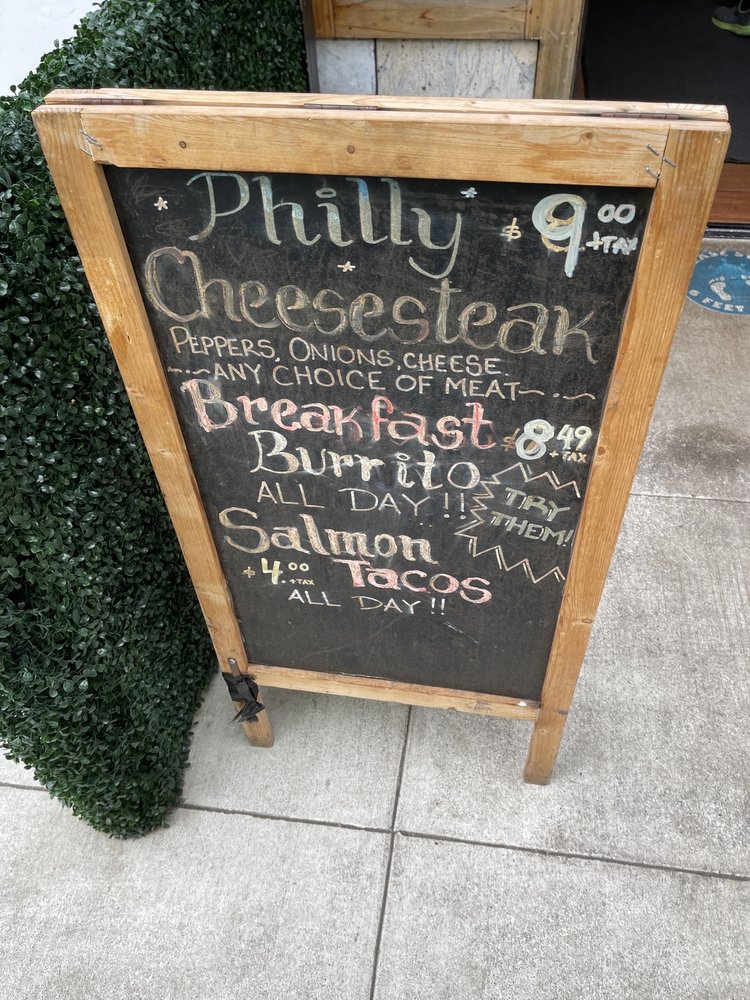 Philly $9.00
+TAX
Cheesesteak
PEPPERS, ONIONS, CHEESE.
~·~ANY CHOICE OF MEAT~·~
Breakfast $8.49
+TAX
Burrito
ALL DAY!!
TRY
THEM!
Salmon
$4.00 +TAX Tacos
ALL DAY!!
6 FEET